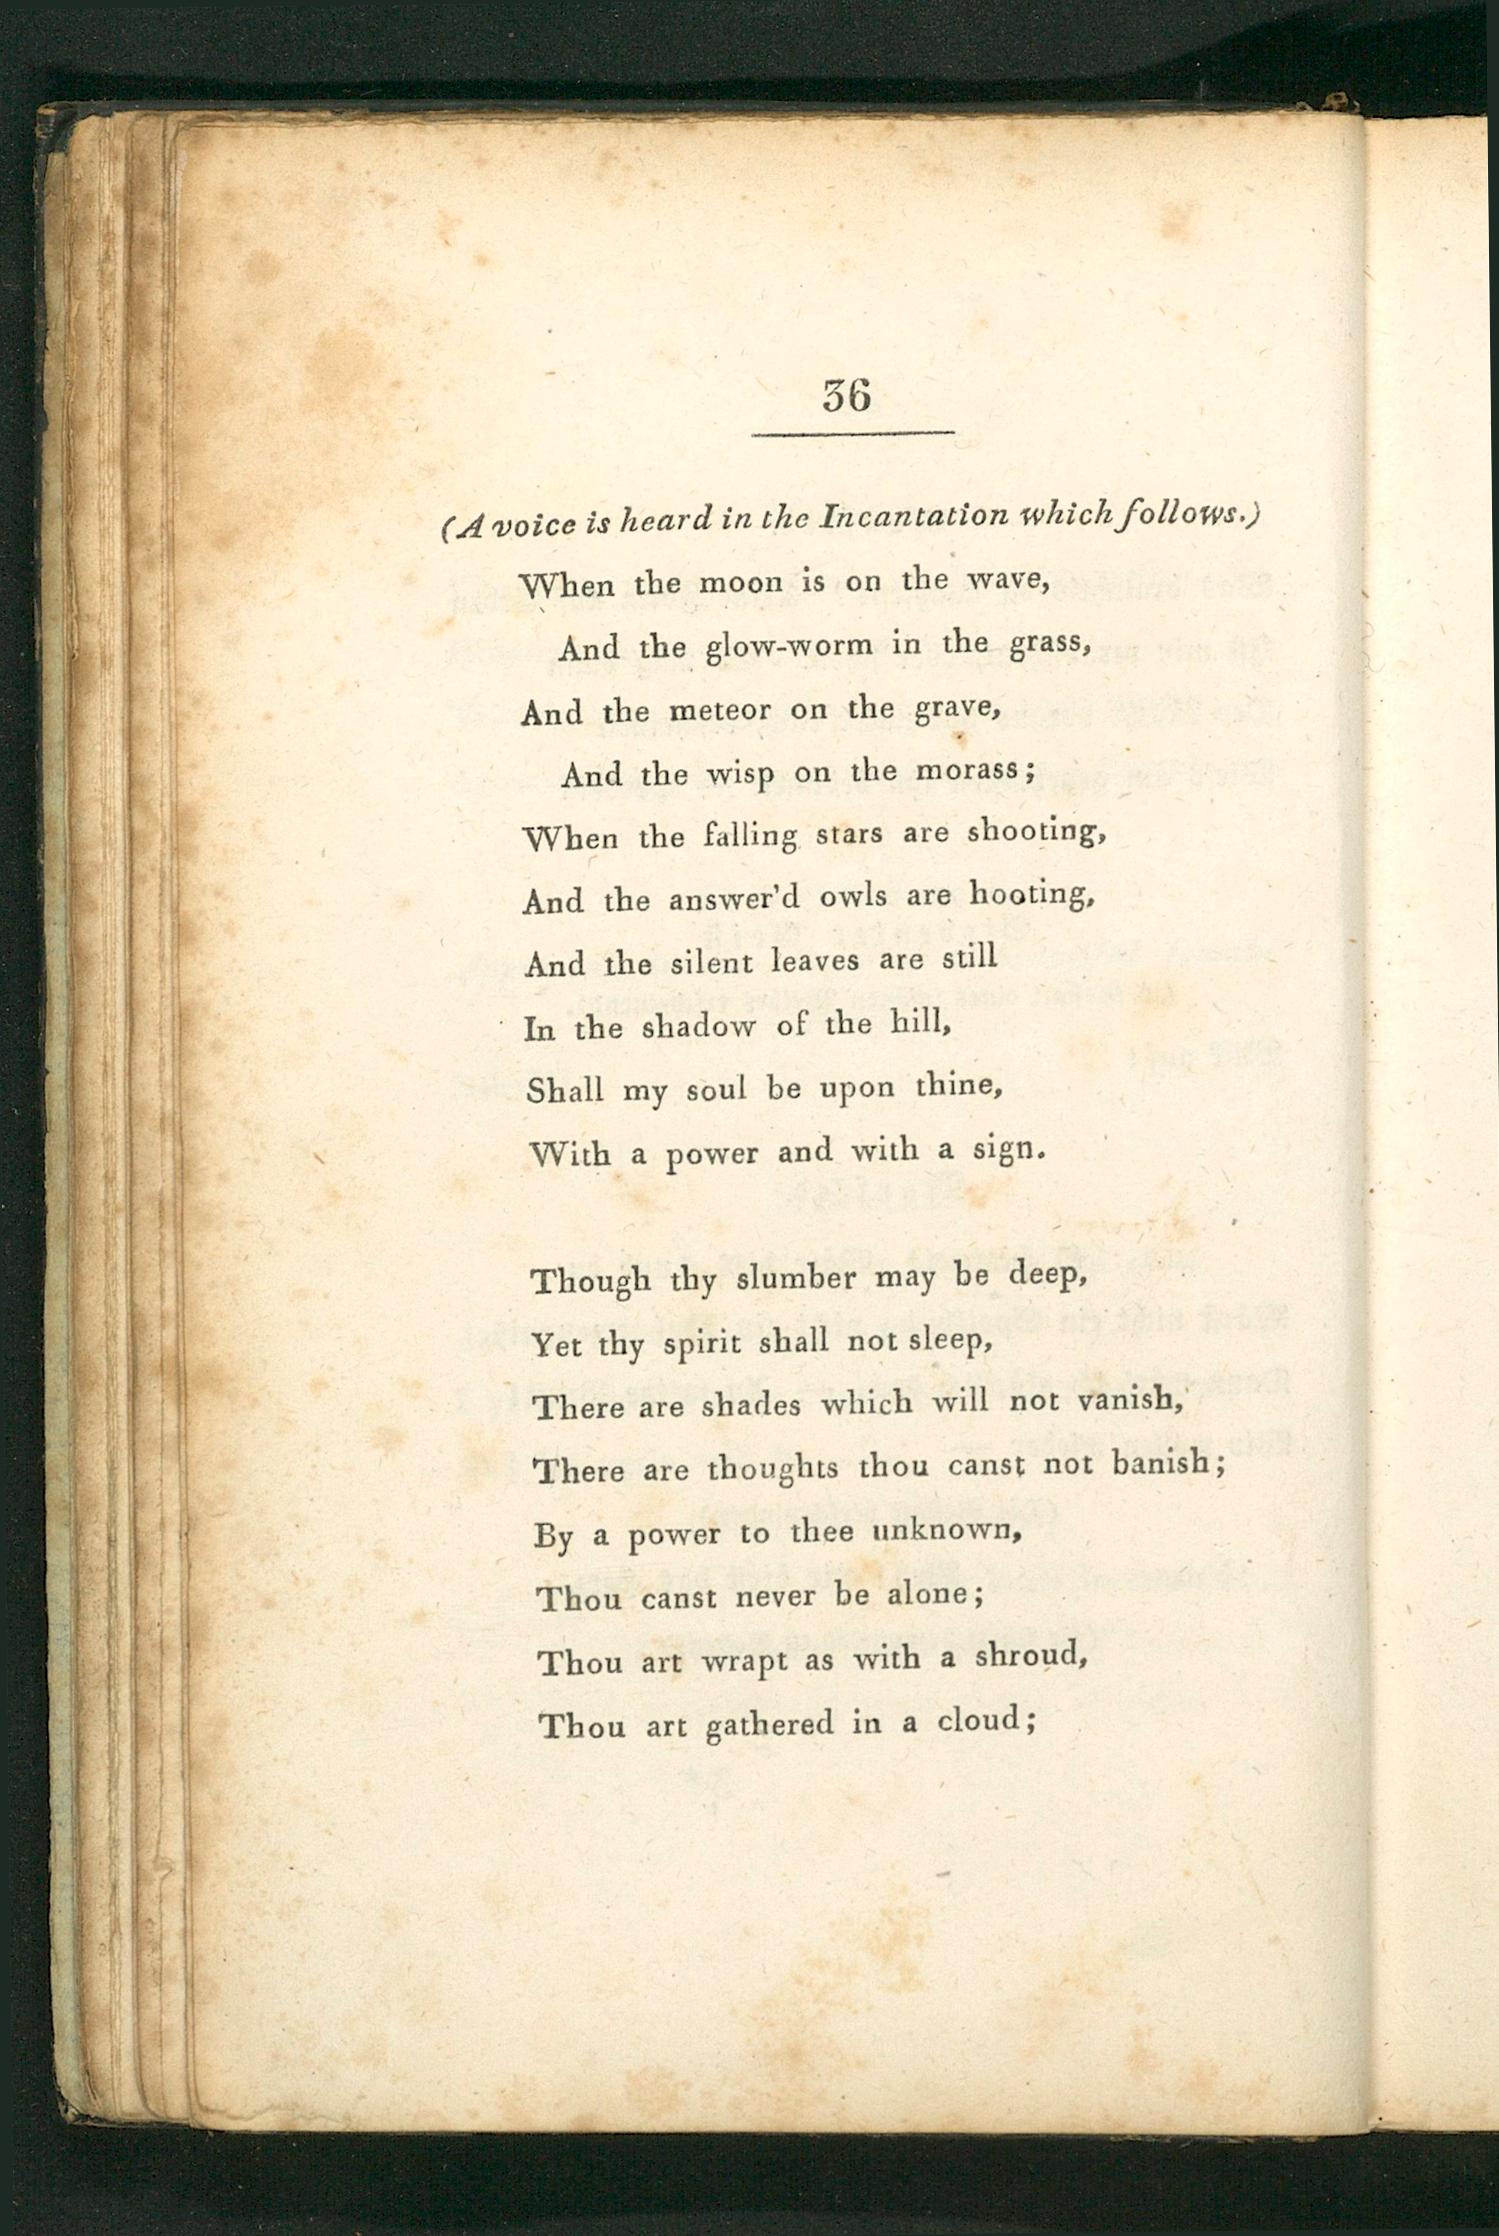 36
(A voice is heard in the Incantation which follows.)
When the moon is on the wave,
And the glow-worm in the grass,
And the meteor on the grave,
And the wisp on the morass;
When the falling stars are shooting,
And the answer'd owls are hooting,
And the silent leaves are still
In the shadow of the hill,
Shall my soul be upon thine,
With a power and with a sign.
Though thy slumber may be deep,
Yet thy spirit shall not sleep,
There are shades which will not vanish,
There are thoughts thou canst not banish;
By a power to thee unknown,
Thou canst never be alone;
Thou art wrapt as with a shroud,
Thou art gathered in a cloud;